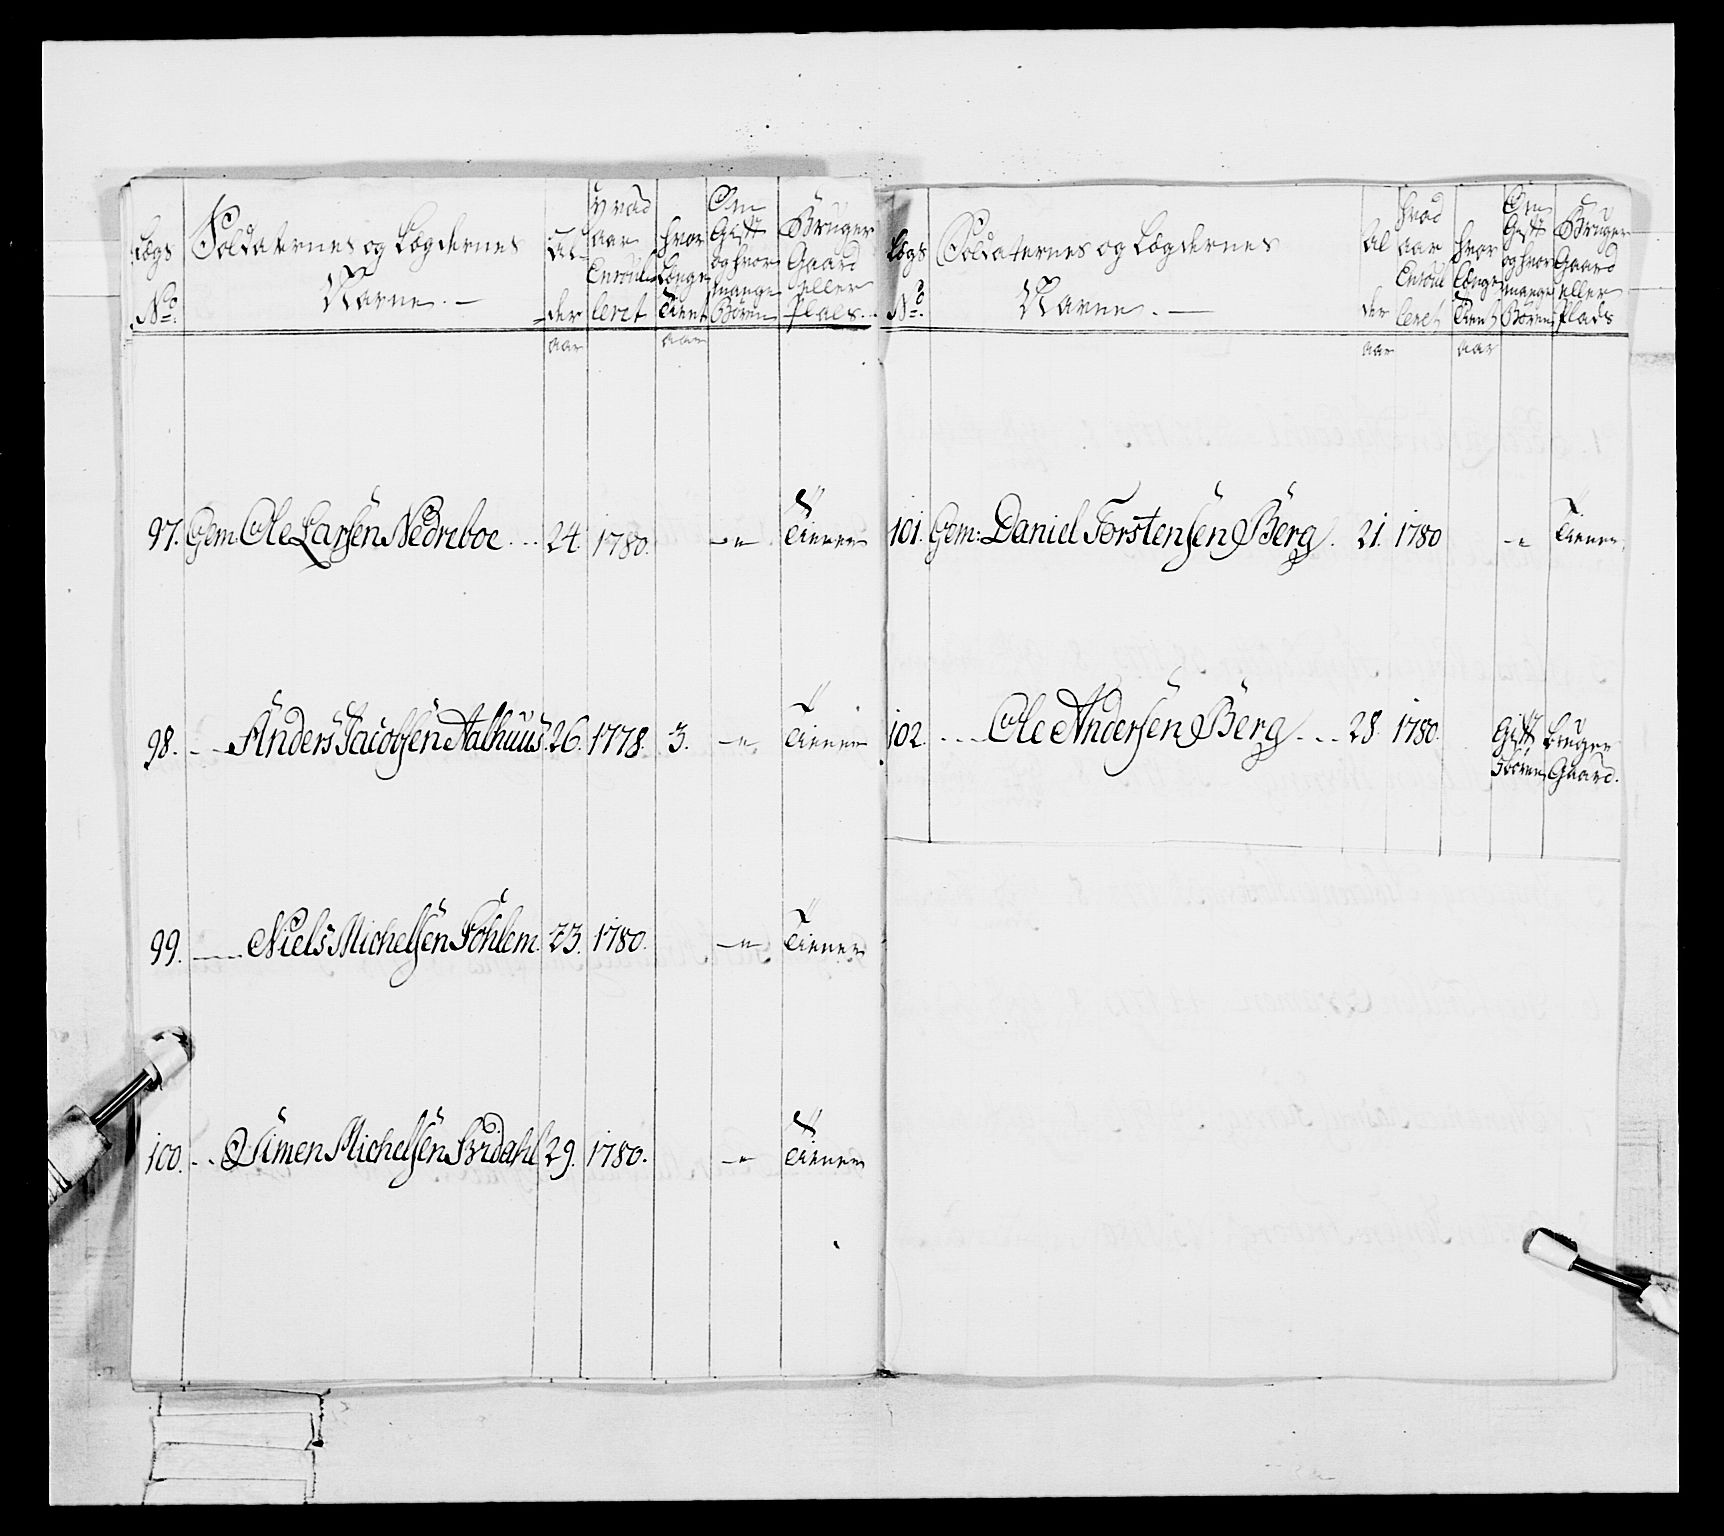 Legs No: Soldaternes og Legdernes Navne. Al der Hvad aar Enroul leret Hvor Længe Tient Om Gift og hvor mange Børen Bruger Gaard eller Plads.
aar aar
97. Gem: Ole Larsen Nedreboe 24. 1780. -"- Tiener
98. Anders Jacobsen Aalhuus 26. 1778. 3. -"- Tiener
99. Niels Michelsen 23. 1780. -"- Tiener
100. Simen Michelsen 29. 1780. -"- Tiener
Legs No. Soldaternes og Legdernes Navne. Al der Hvad aar Enroul leret Hvor Længe Tient Om Gift og hvor mange Børen Bruger Gaard eller Plads
aar aar
101. Gem: Daniel Torstensen Berg. 21. 1780 -"- Tiener
102. Ole Andersen Berg 28. 1780. Gift Bruger
boren Gaard.